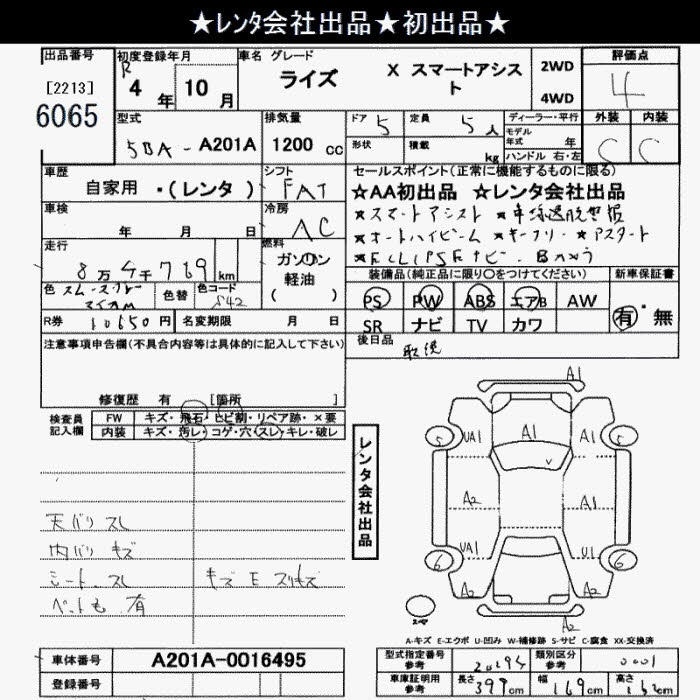 ★レンタ会社出品★初出品★
出品番号 初度登録年月 車名 グレード 評価点
[2213] R 4年 10月 ライズ X スマートアシスト 2WD 4
6065 4WD
型式 排気量 ドア 5 定員 5人 ディーラー・平行 外装 内装
5BA-A201A 1200cc 形状 積載 kg モデル年式 年 C C
ハンドル 右・左
車歴 シフト セールスポイント(正常に機能するものに限る)
自家用・(レンタ) FAT ☆AA初出品 ☆レンタ会社出品
車検 冷房 ★スマートアシスト
年 月 日 AC ★オートハイビーム ★キーフリー ★アスタート
走行 燃料
8万4千789km ガソリン
軽油
( )
装備品(純正品に限り○をつけてください) 新車保証書
色 色替 色コード S42 PS PW ABS エアB AW 有・無
R券 10650円 名変期限 月 日 SR ナビ TV カワ
注意事項申告欄(不具合内容等は具体的に記入して下さい) 後日品 取説
修復歴 有 [箇所 ]
検査員記入欄 FW キズ・飛石・ヒビ割・リペア跡・×要
内装 キズ・汚レ・コゲ・穴・スレ・キレ・破レ
レンタ会社出品
A1
5 UA1 A1 A1 5
A2 A1
6 UA1 U1 6
A2 A2
A2
天バリ スレ
内バリ キズ
シート スレ キズ E スリキズ
ペット毛 有
A-キズ E-エクボ U-凹み W-補修跡 S-サビ C-腐食 XX-交換済
車体番号 A201A-0016495 型式指定番号参考 20195 類別区分参考 0001
登録番号 車庫証明用参考 長さ 399cm 幅 169cm 高さ cm